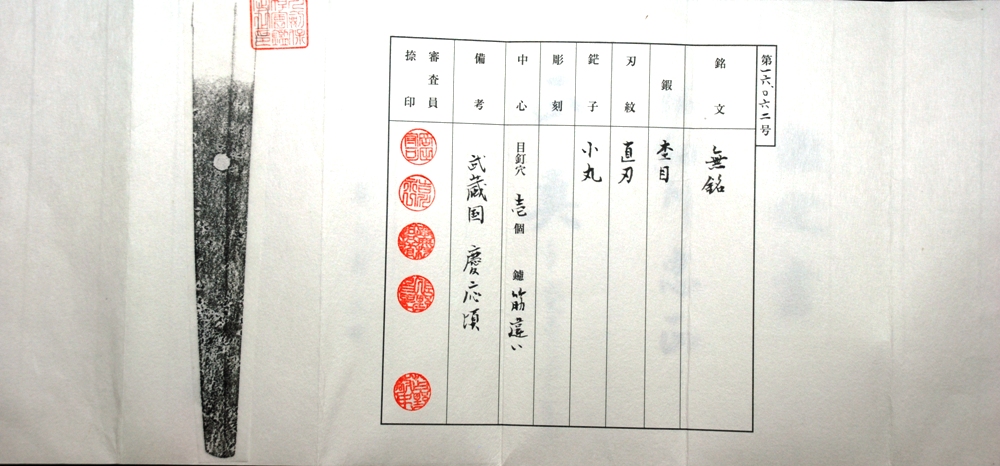 第一六、〇六二号
銘文 無銘
鍜 杢目
刃紋 直刃
鋩子 小丸
彫刻
中心 目釘穴 壱個 鑢 筋違い
備考 武蔵国 慶応頃
審査員
捺印